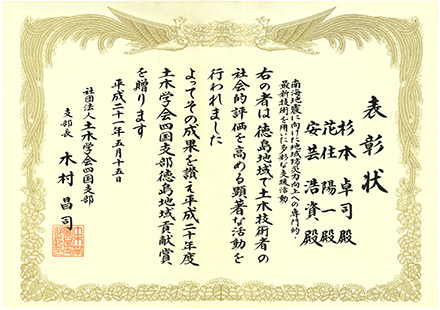 表彰状
杉本卓司殿
花住陽一殿
安芸浩資殿
南海地震に向けた地域防災力向上への専門的・
最新技術を用いた多彩な支援活動
右の者は徳島地域で土木技術者の
社会的評価を高める顕著な活動を
行われました
よってその成果を讃え平成二十年度
土木学会四国支部徳島地域貢献賞
を贈ります
平成二十一年五月十五日
社団法人土木学会四国支部
支部長 木村昌司